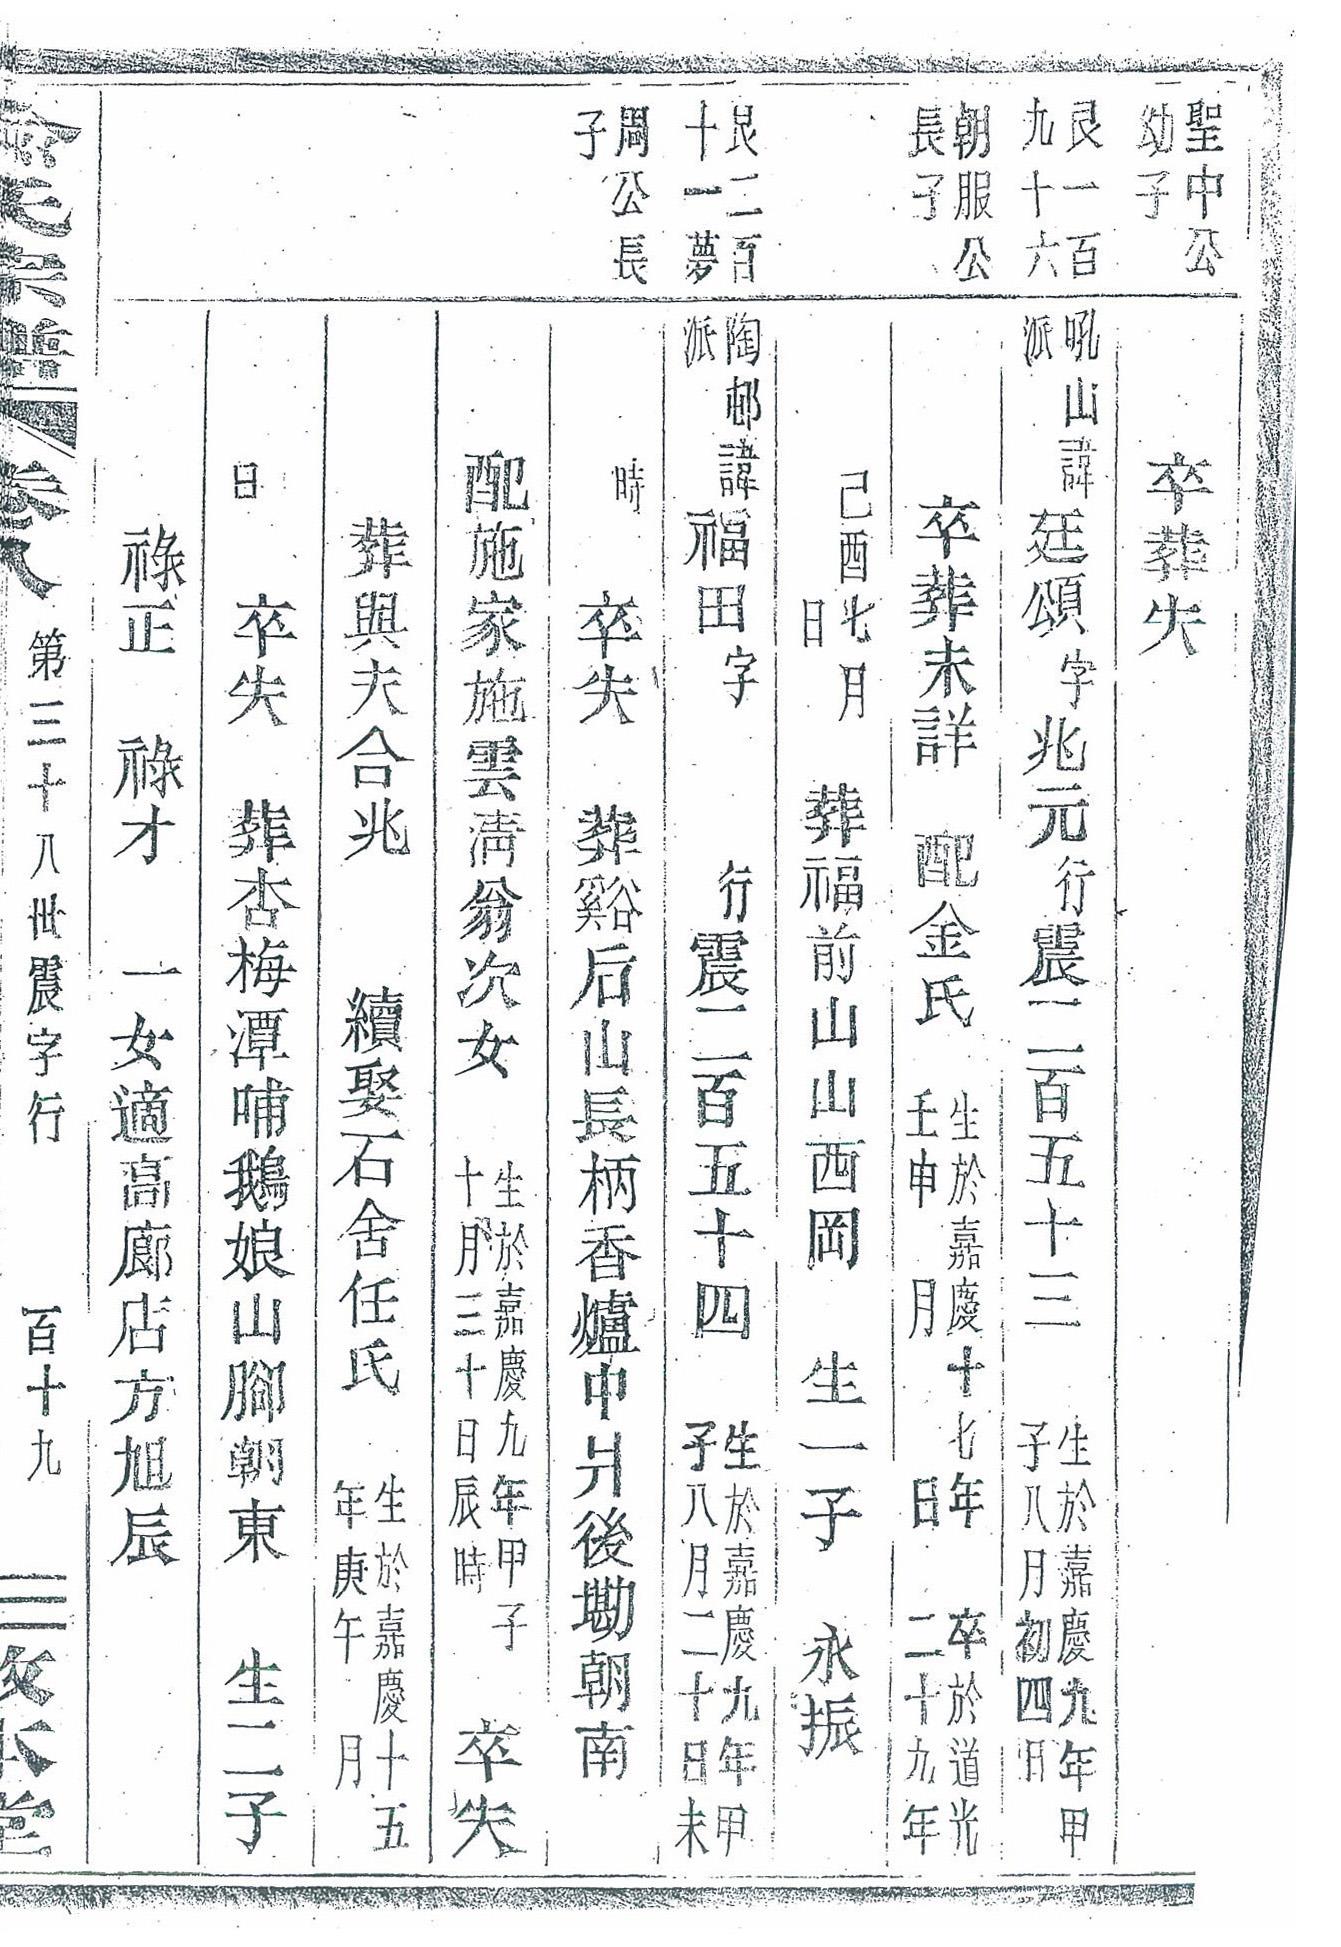 聖中公
幼子
卒葬失
艮一百
九十六
朝服公
長子
吼山
派
諱廷頌字兆元行震二百五十三
生於嘉慶九年甲
子八月初四日
卒葬未詳 配金氏
生於嘉慶十七年
壬申 月 日
卒於道光
二十九年
己酉七月
日
葬福前山山西岡 生一子 永振
艮二百
十一夢
周公長
子
陶邨
派
諱福田字 行震二百五十四
生於嘉慶九年甲
子八月二十日未
時
卒失 葬谿后山長柄香爐中爿後墈朝南
配施家施雲淸翁次女
生於嘉慶九年甲子
十月三十日辰時
卒失
葬與夫合兆 續娶石舍任氏
生於嘉慶十五
年庚午 月
日
卒失 葬杏梅潭哺鵝娘山腳朝東 生二子
祿正 祿才 一女適高廊店方旭辰
氏宗譜 卷八 第三十八世震字行 百十九 敦本堂